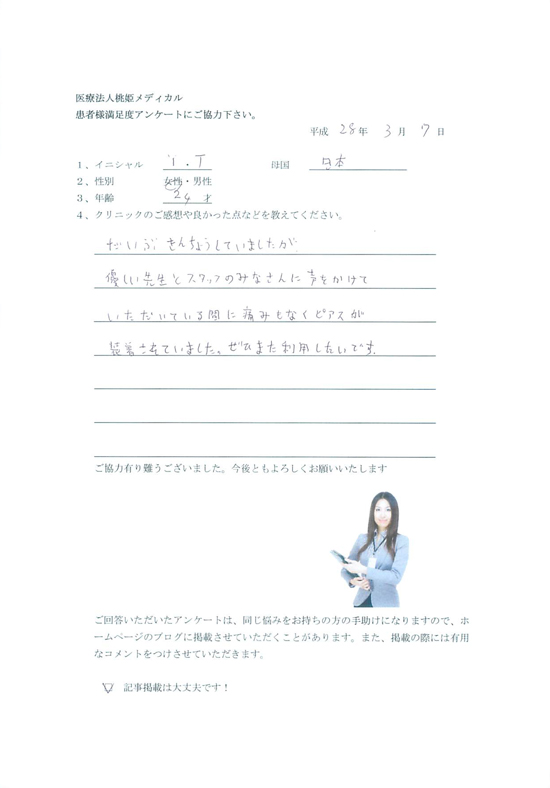 医療法人桃姫メディカル
患者様満足度アンケートにご協力下さい。
平成 28 年 3 月 7 日
1、イニシャル i . T 母国 日本
2、性別 女性・男性
3、年齢 24 才
4、クリニックのご感想や良かった点などを教えてください。
だいぶ きんちょうしていましたが、
優しい先生とスタッフのみなさんに声をかけて
いただいている間に痛みもなくピアスが
装着されていました。ぜひまた利用したいです。
ご協力有り難うございました。今後ともよろしくお願いいたします
ご回答いただいたアンケートは、同じ悩みをお持ちの方の手助けになりますので、ホ
ームページのブログに掲載させていただくことがあります。また、掲載の際には有用
なコメントをつけさせていただきます。
記事掲載は大丈夫です！